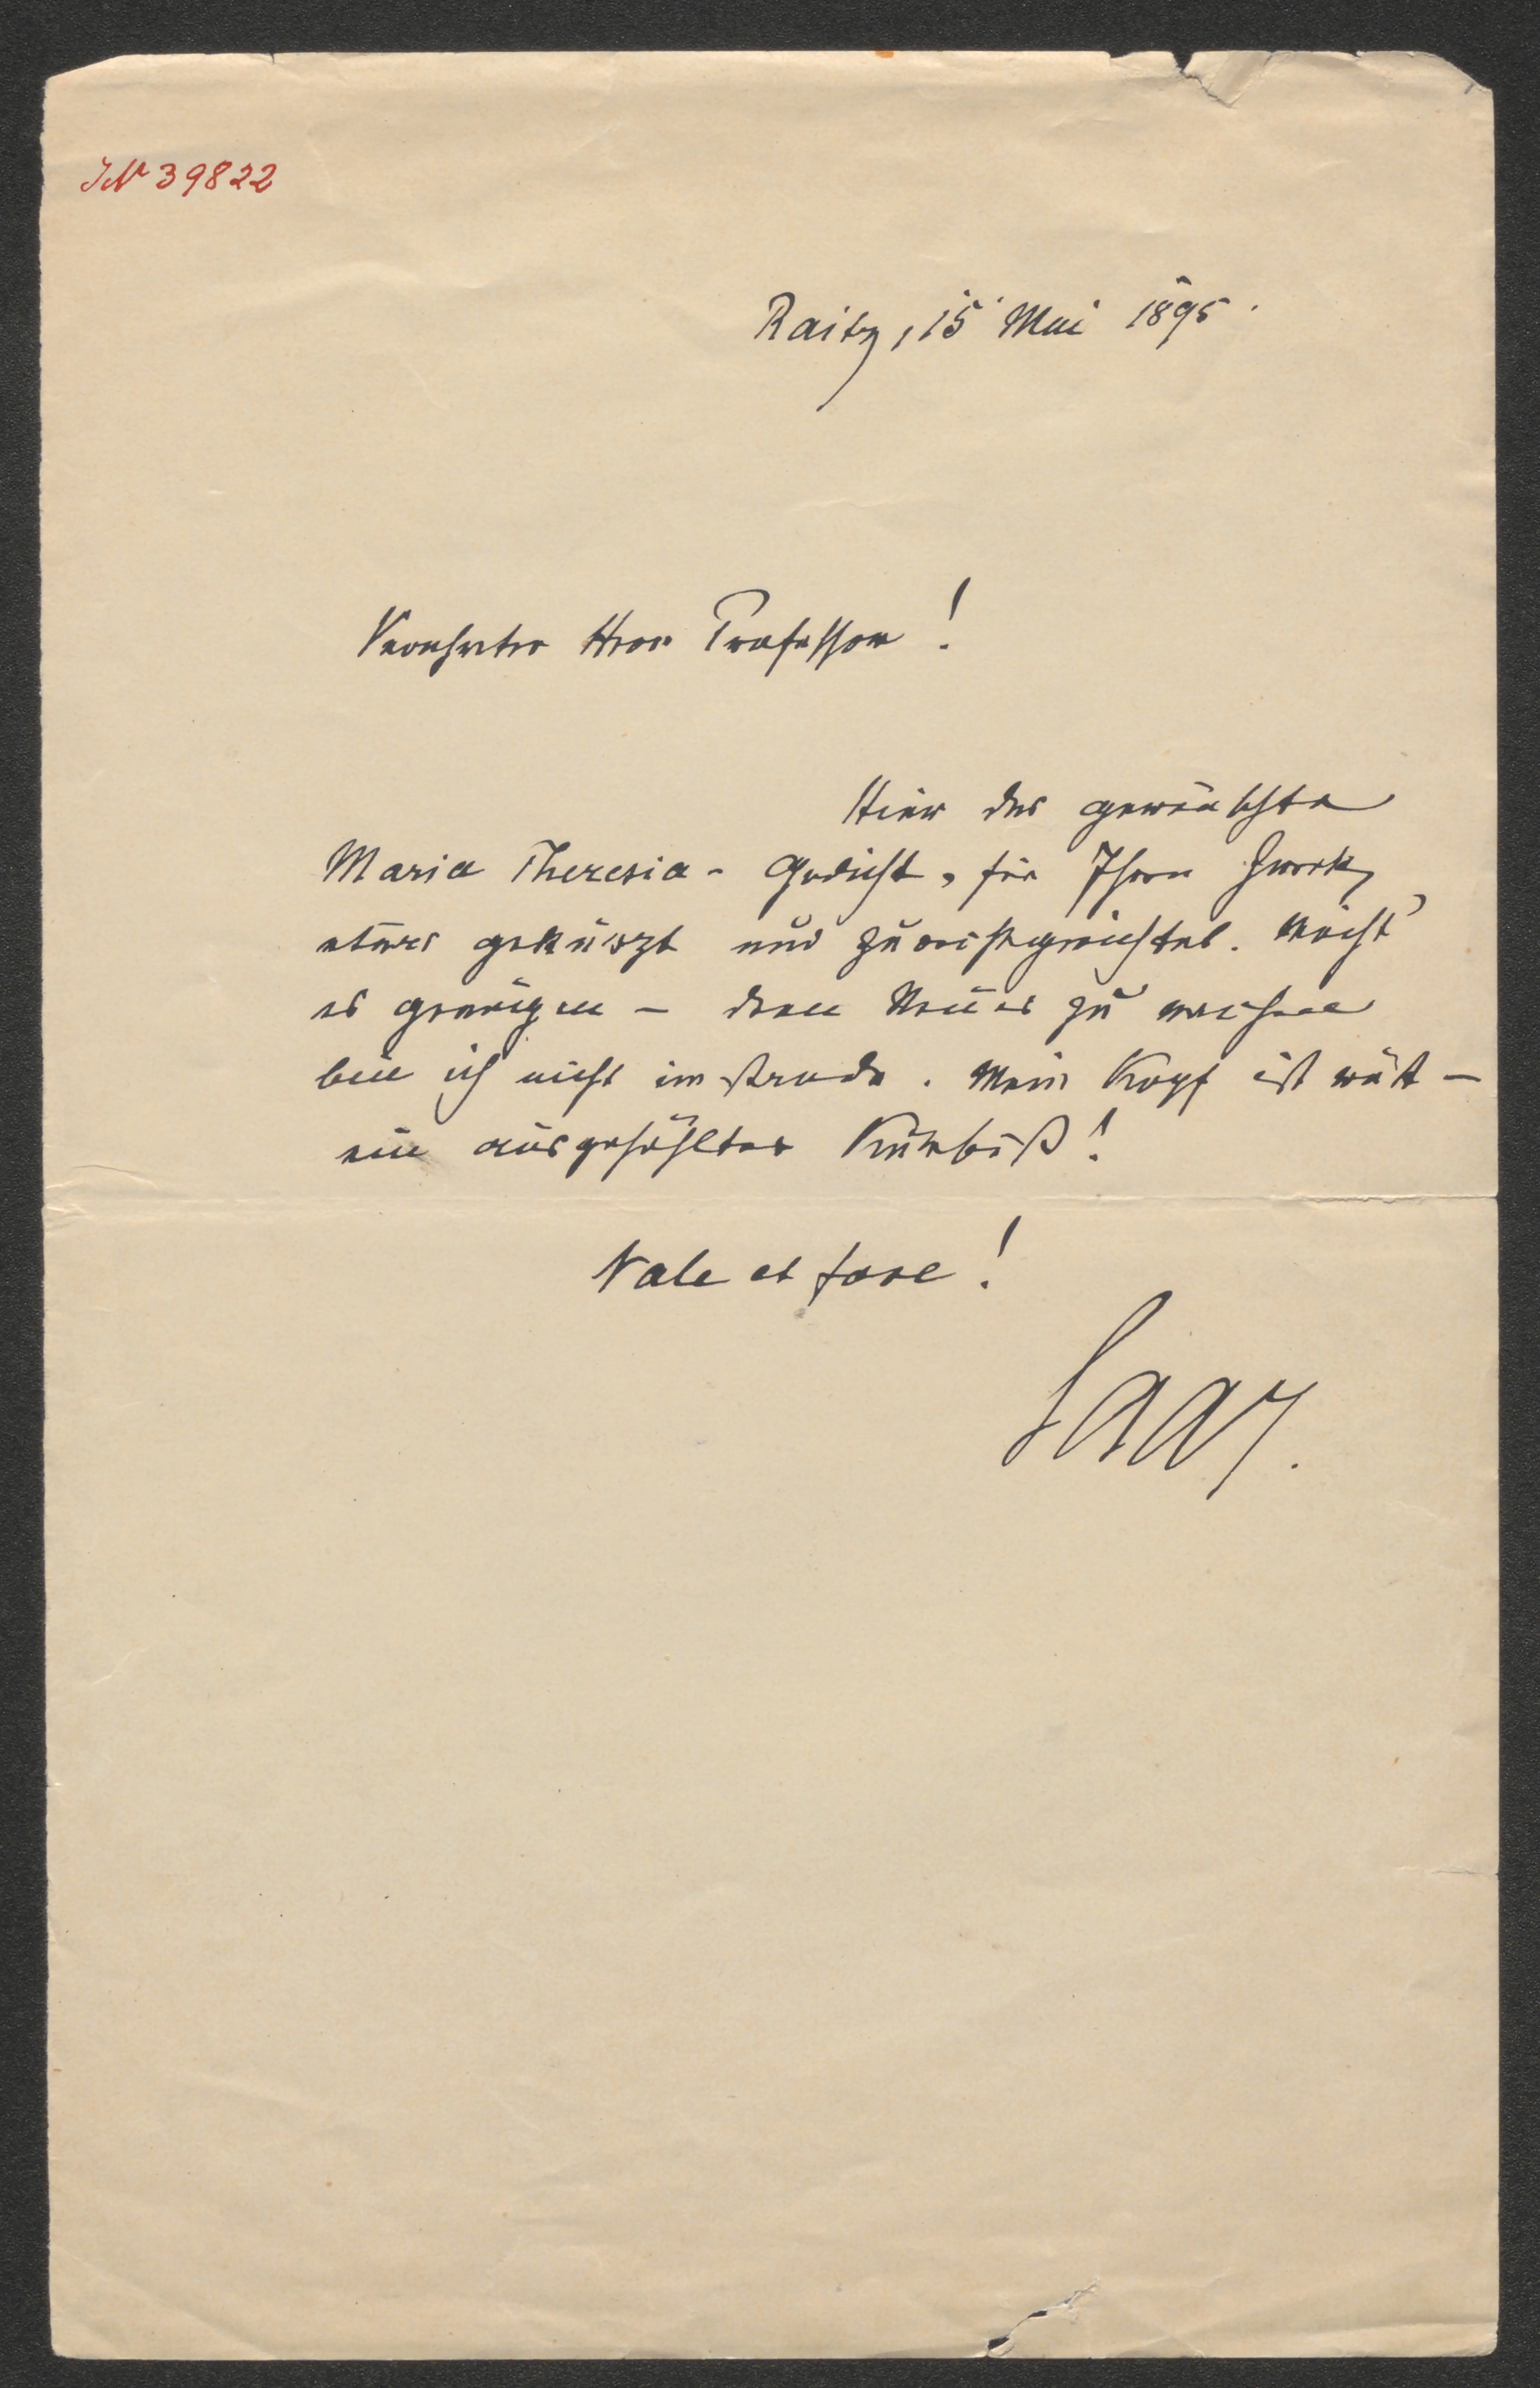 IN 39822
Raitz, 15 Mai 1895.
Verehrter Herr Professor!
Hier das gewünschte
Maria Theresia-Gedicht, für Ihren Zweck
etwas gekürzt und zurechtgerichtet. Möcht'
es genügen – denn Neues zu
bin ich nicht imstande. Mein Kopf ist wüst –
ein ausgehöhlter Kürbiß!
Vale et fave!
Saar.